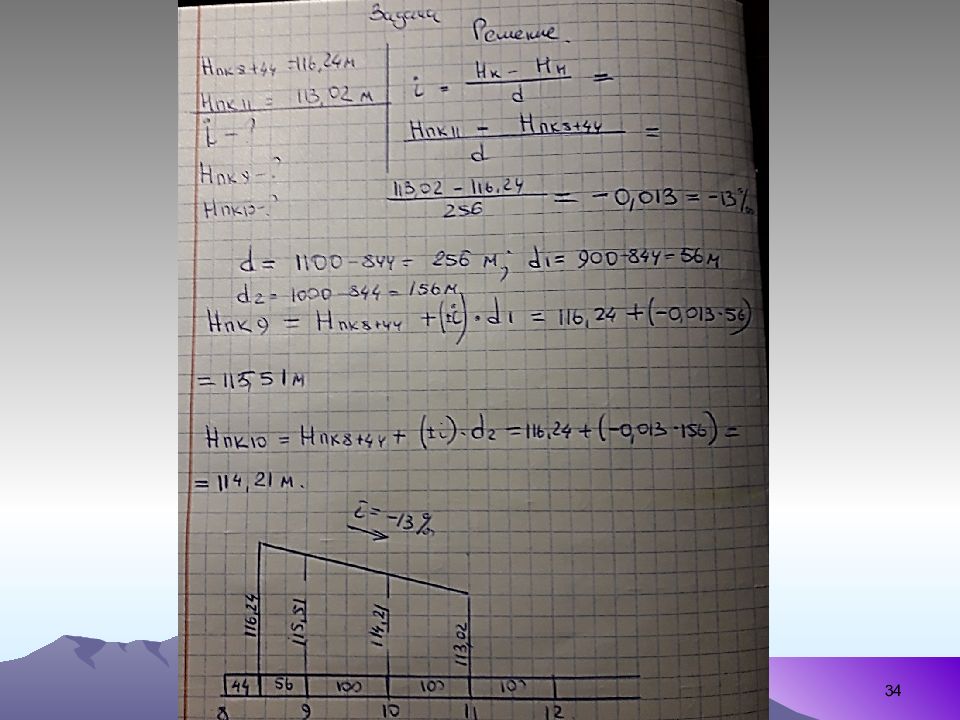 Задача
Решение.
Нпк8+44 =116,24м
Нпк11 = 113,02 м
i - ?
Нпк9-?
Нпк10-?
i = Нк - Нн / d =
Нпк11 - Нпк8+44 / d =
113,02 - 116,24 / 256 = -0,013 = -13‰
d = 1100-844 = 256 м; d1 = 900-844=56м
d2 = 1000-844 = 156м
Нпк9 = Нпк8+44 +(±i)·d1 = 116,24 +(-0,013·56)
= 115,51м
Нпк10 = Нпк8+44 + (±i)·d2 =116,24 +(-0,013·156) =
= 114,21 м.
i = -13‰
116,24 115,51 114,21 113,02
44 56 100 100 100
8 9 10 11 12
34